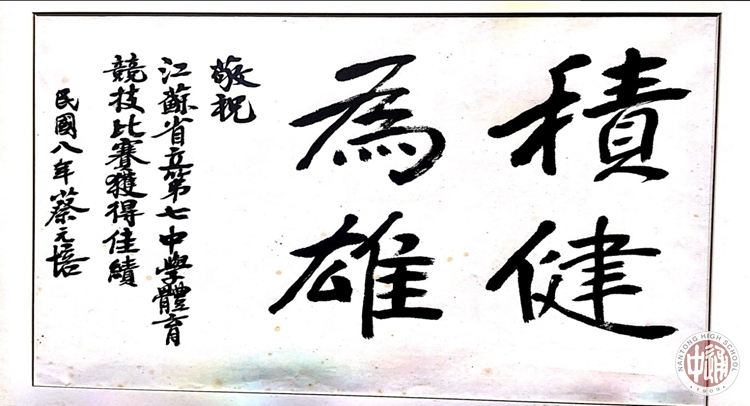 積健
為雄
敬祝
江蘇省立第七中學體育
競技比賽獲得佳績
民國八年蔡元培
NANTONG HIGH SCHOOL
通中
1909